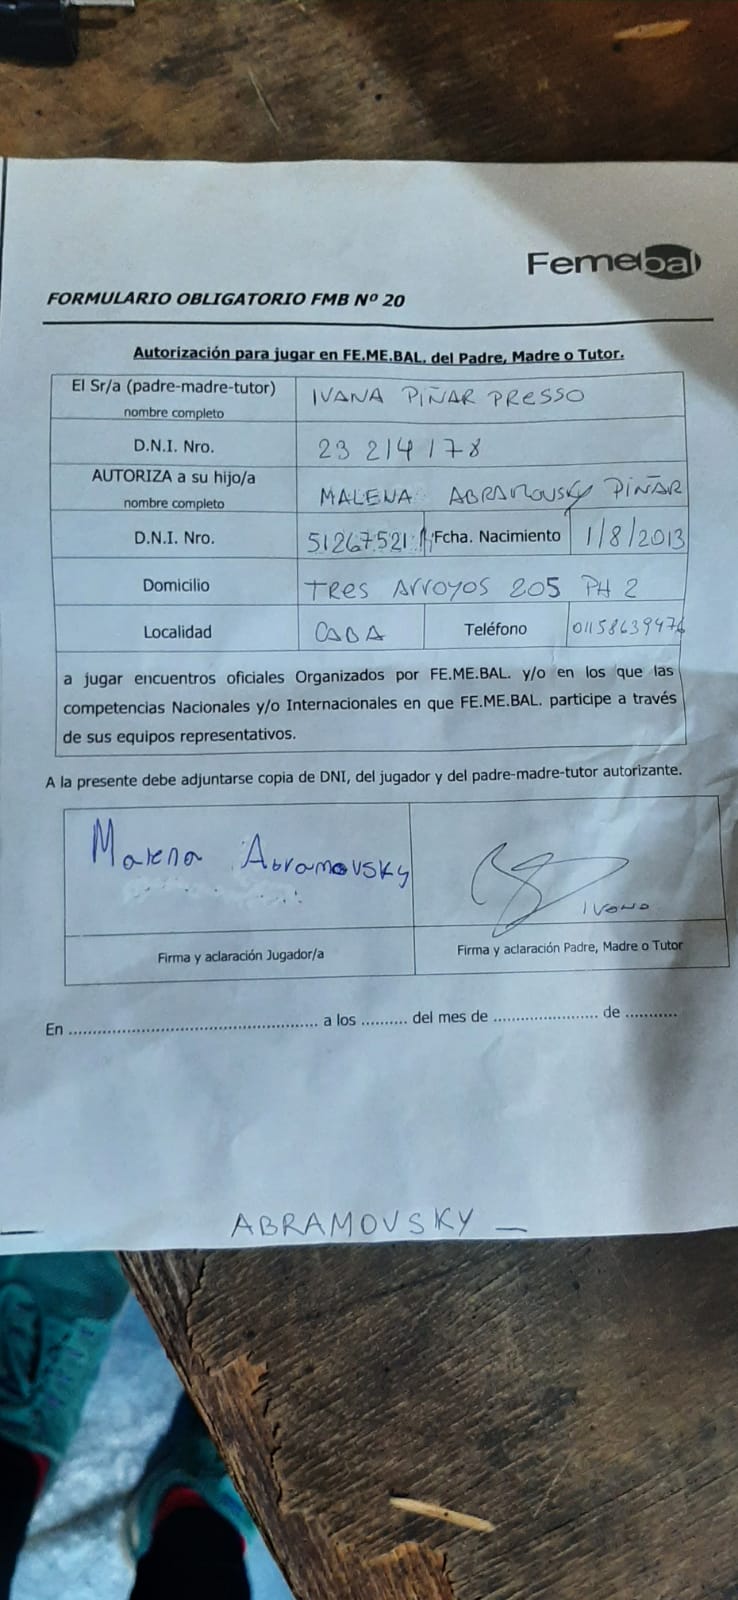 Femebal
FORMULARIO OBLIGATORIO FMB Nº 20
Autorización para jugar en FE.ME.BAL. del Padre, Madre o Tutor.
El Sr/a (padre-madre-tutor)
nombre completo
IVANA PIÑAR PRESSO
D.N.I. Nro.
23 214 178
AUTORIZA a su hijo/a
nombre completo
MALENA ABRAMOVSKY PIÑAR
D.N.I. Nro.
51267521
Fcha. Nacimiento
1/8/2013
Domicilio
TRES ARROYOS 205 PH 2
Localidad
CABA
Teléfono
01158639476
a jugar encuentros oficiales Organizados por FE.ME.BAL. y/o en los que las
competencias Nacionales y/o Internacionales en que FE.ME.BAL. participe a través
de sus equipos representativos.
A la presente debe adjuntarse copia de DNI, del jugador y del padre-madre-tutor autorizante.
Malena Abramovsky
Ivana
Firma y aclaración Jugador/a
Firma y aclaración Padre, Madre o Tutor
En .................................................. a los .......... del mes de ...................... de ...........
ABRAMOVSKY _